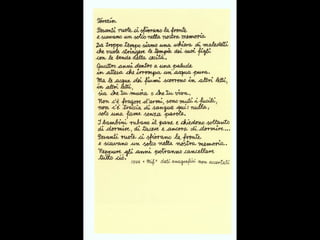 Pesanti ruote ci sfiorano la fronte
e scavano un solco nella nostra memoria
Da troppo tempo siamo una schiera di maledetti
che vuole stringere le tempie dei suoi figli
con le bende della cecità.
Quattro anni dentro a una palude
in attesa che irrompa un'acqua pura.
Ma le acque dei fiumi scorrono in altri letti,
in altri letti,
sia che tu muoia o che tu viva.
Non c'è fragore d'armi, sono muti i fucili,
non c'è traccia di sangue qui: nulla,
solo una fame senza parole.
I bambini rubano il pane e chiedono soltanto
di dormire, di tacere e ancora di dormire...
Pesanti ruote ci sfiorano la fronte
e scavano un solco nella nostra memoria.
Neppure gli anni potranno cancellare
tutto ciò.
1944 * Mif* dati anagrafici non accertati